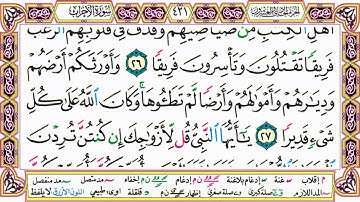 سُورَةُ الأَحْزَابِ ٤٢١
أَهْلِ الْكِتَٰبِ مِن صَيَاصِيهِمْ وَقَذَفَ فِي قُلُوبِهِمُ الرُّعْبَ
فَرِيقًا تَقْتُلُونَ وَتَأْسِرُونَ فَرِيقًا ٢٦ وَأَوْرَثَكُمْ أَرْضَهُمْ
وَدِيَٰرَهُمْ وَأَمْوَٰلَهُمْ وَأَرْضًا لَّمْ تَطَـُٔوهَا ۚ وَكَانَ اللَّهُ عَلَىٰ كُلِّ
شَيْءٍ قَدِيرًا ٢٧ يَٰٓأَيُّهَا النَّبِيُّ قُل لِّأَزْوَٰجِكَ إِن كُنتُنَّ تُرِدْنَ